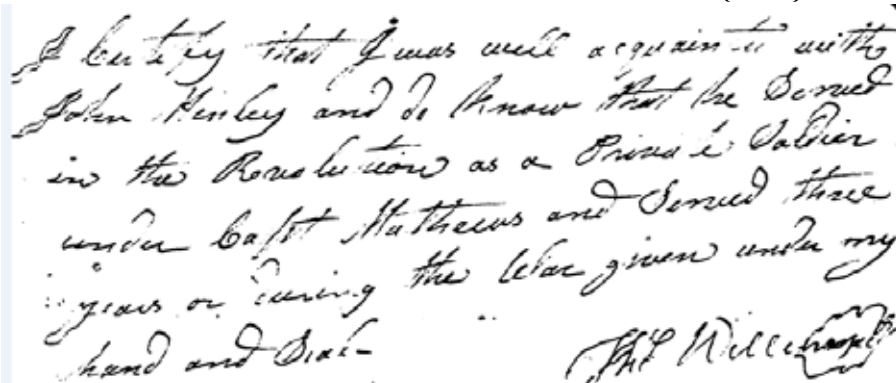 I Certify that I was well acquainte with
John Henley and do Know that he Served
in the Revolution as a Private Soldier
under Capt Mathews and Served three
years or during the War given under my
hand and Seal